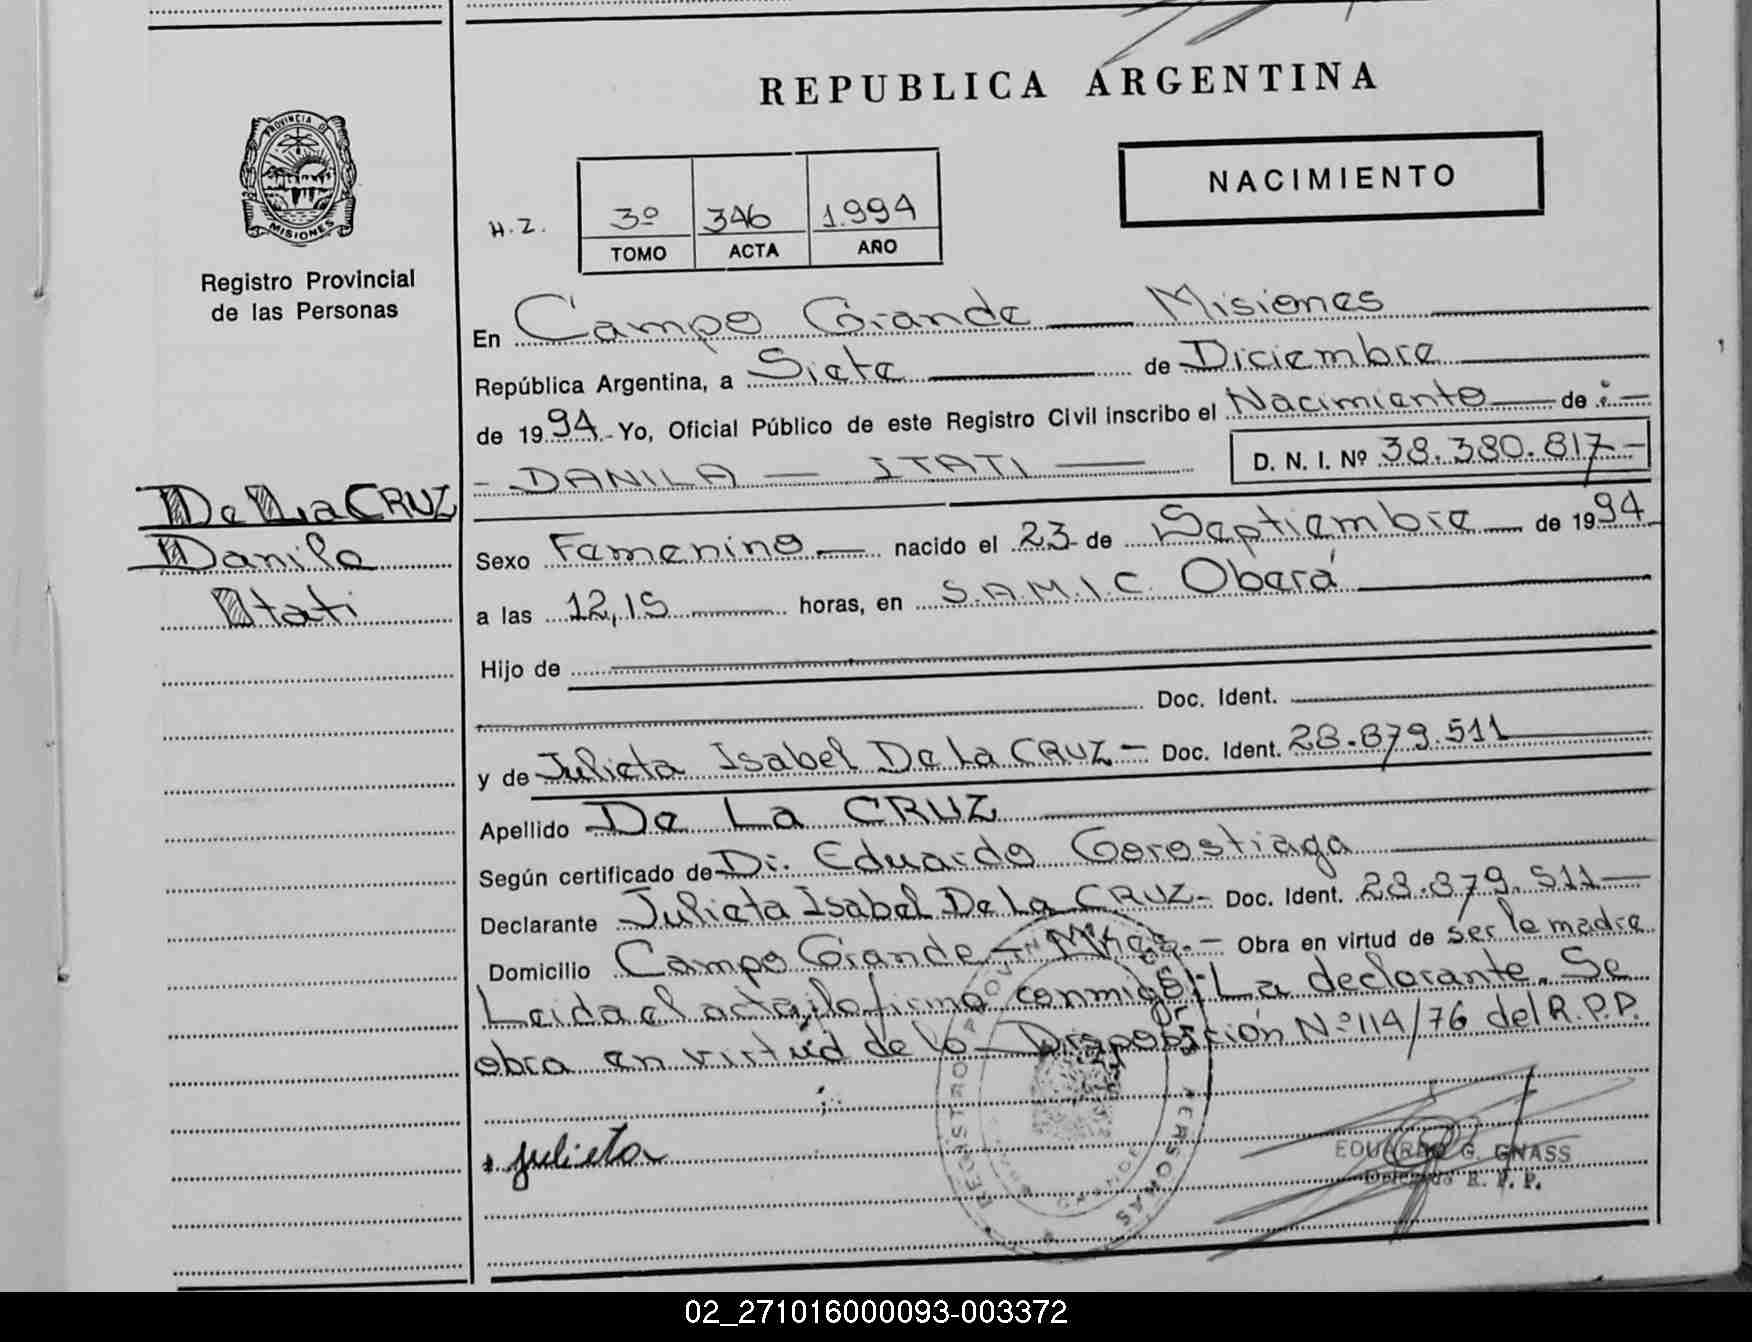 REPUBLICA ARGENTINA
PROVINCIA DE
MISIONES
Registro Provincial
de las Personas
NACIMIENTO
H.Z. 3º 346 1.994
TOMO ACTA AÑO
En Campo Grande Misiones
República Argentina, a Siete de Diciembre
de 1994.- Yo, Oficial Público de este Registro Civil inscribo el Nacimiento de :-
- DANILA - ITATI D. N. I. Nº 38.380.817-
De La CRUZ
Danila
Itati
Sexo Femenino nacido el 23 de Septiembre de 1994
a las 12,15 horas, en S.A.M.I.C. Oberá
Hijo de
Doc. Ident.
y de Julieta Isabel De La CRUZ - Doc. Ident. 28.879.511
Apellido De La CRUZ
Según certificado de Dr. Eduardo Gorostiaga
Declarante Julieta Isabel De La CRUZ.- Doc. Ident. 28.879.511-
Domicilio Campo Grande - Mnes.- Obra en virtud de ser la madre
Leida el acta, la firma conmigo: La declarante. Se
obra en virtud de la Disposición Nº 114/76 del R.P.P.
Julieta
EDUARDO G. GNASS
Delegado R. P. P.
REGISTRO PERSONAS
02_271016000093-003372